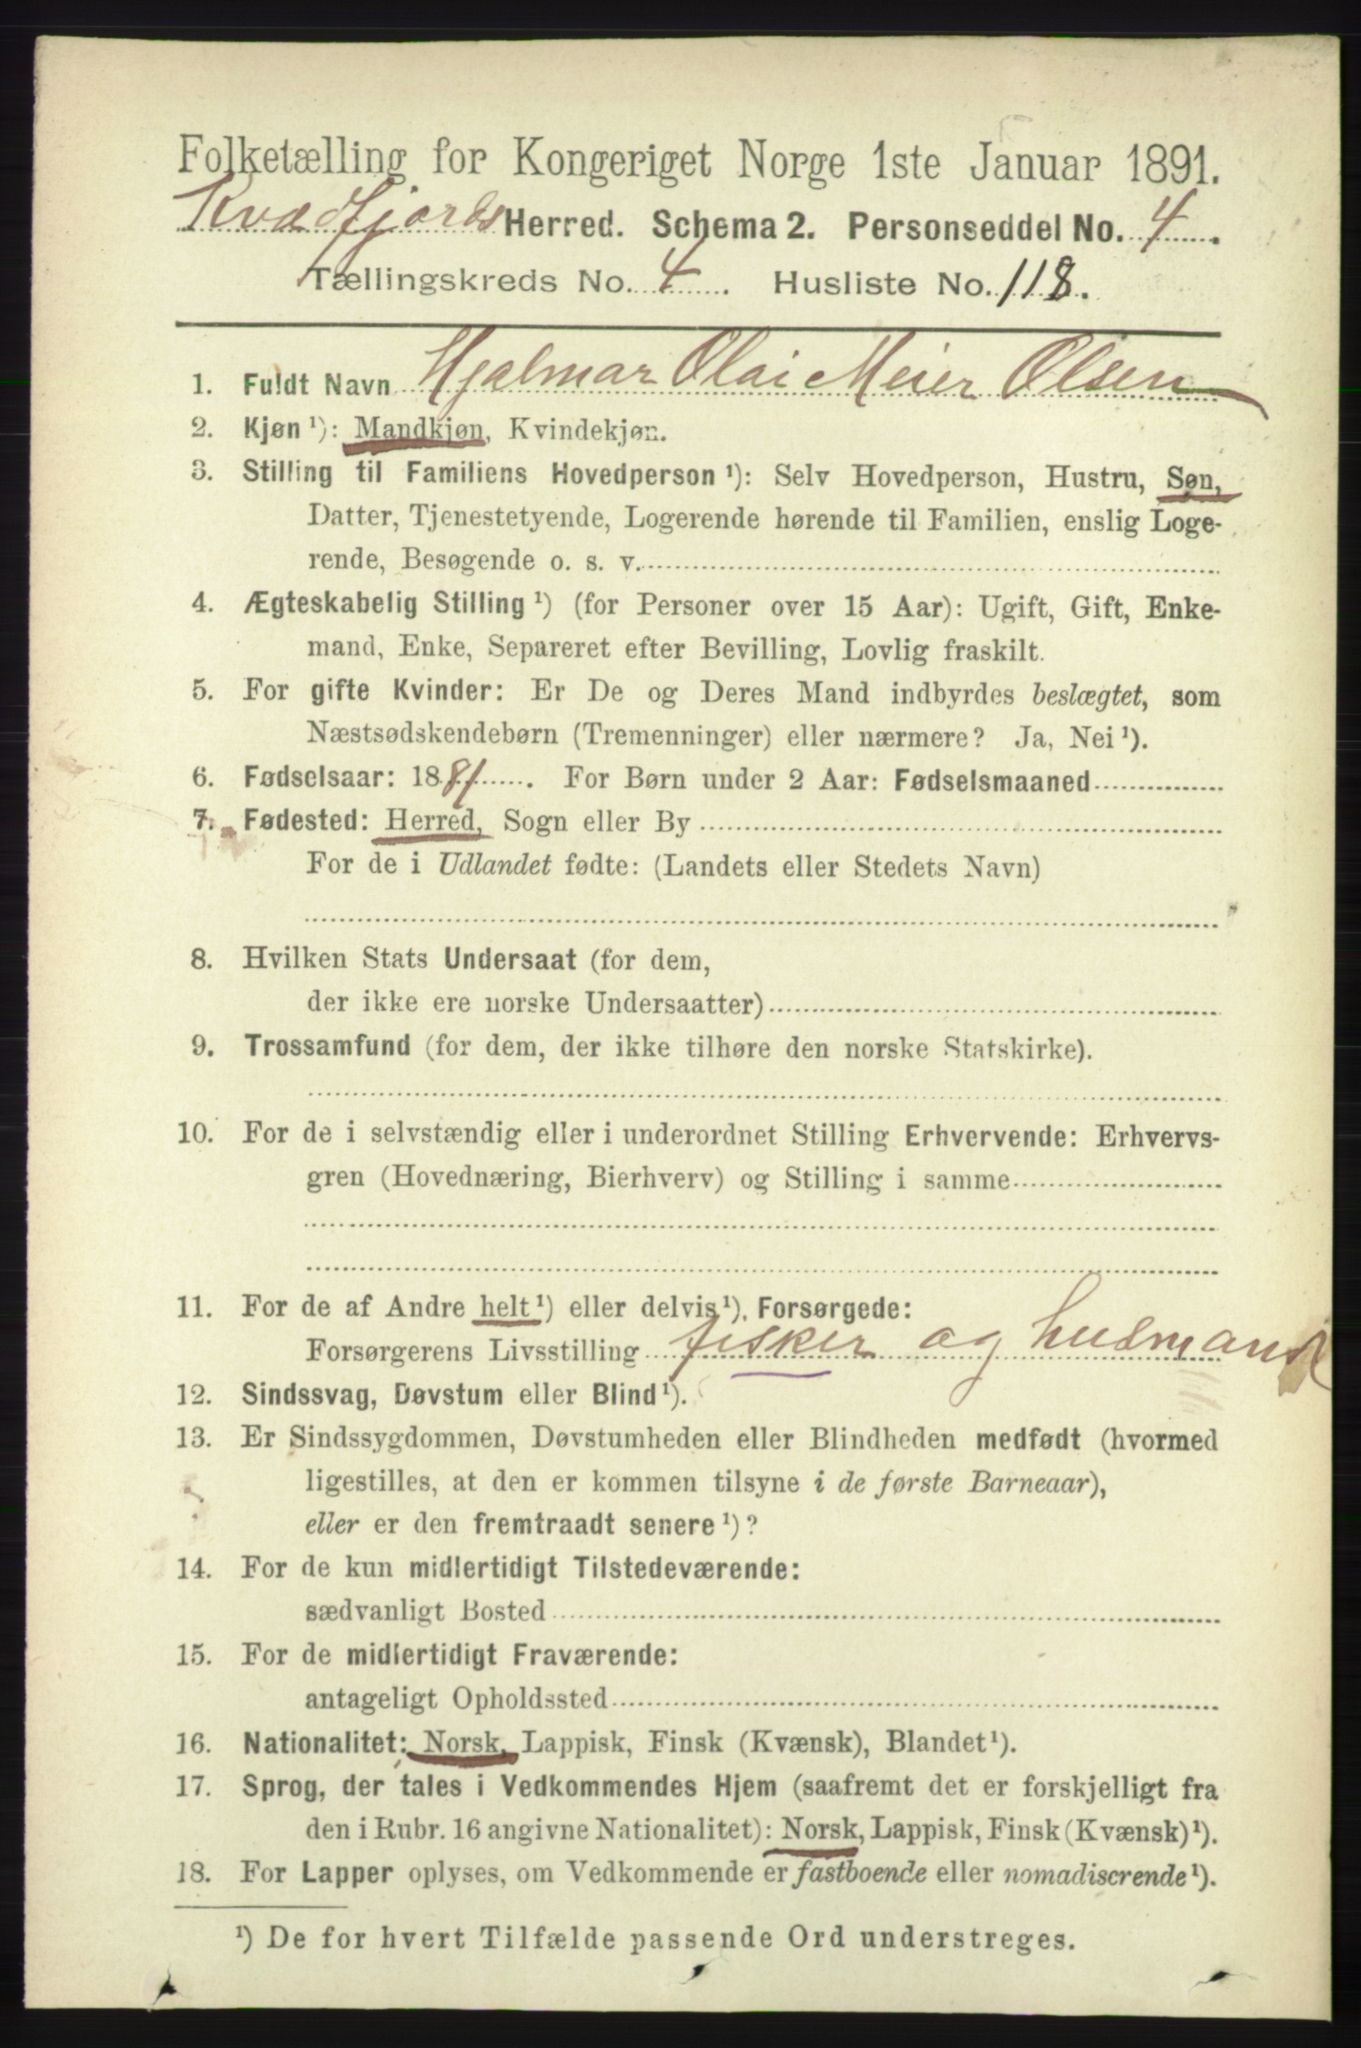 Folketælling for Kongeriget Norge 1ste Januar 1891.
Kvædfjords Herred. Schema 2. Personseddel No. 4.
Tællingskreds No. 4. Husliste No. 118.
1. Fuldt Navn Hjalmar Olai Meier Olsen
2. Kjøn ¹): Mandkjøn, Kvindekjøn.
3. Stilling til Familiens Hovedperson ¹): Selv Hovedperson, Hustru, Søn,
Datter, Tjenestetyende, Logerende hørende til Familien, enslig Loge-
rende, Besøgende o. s. v.
4. Ægteskabelig Stilling ¹) (for Personer over 15 Aar): Ugift, Gift, Enke-
mand, Enke, Separeret efter Bevilling, Lovlig fraskilt.
5. For gifte Kvinder: Er De og Deres Mand indbyrdes beslægtet, som
Næstsødskendebørn (Tremenninger) eller nærmere? Ja, Nei ¹).
6. Fødselsaar: 1881. For Børn under 2 Aar: Fødselsmaaned
7. Fødested: Herred, Sogn eller By
For de i Udlandet fødte: (Landets eller Stedets Navn)
8. Hvilken Stats Undersaat (for dem,
der ikke ere norske Undersaatter)
9. Trossamfund (for dem, der ikke tilhøre den norske Statskirke).
10. For de i selvstændig eller i underordnet Stilling Erhvervende: Erhvervs-
gren (Hovednæring, Bierhverv) og Stilling i samme
11. For de af Andre helt ¹) eller delvis ¹), Forsørgede:
Forsørgerens Livsstilling fisker og husmand
12. Sindssvag, Døvstum eller Blind ¹).
13. Er Sindssygdommen, Døvstumheden eller Blindheden medfødt (hvormed
ligestilles, at den er kommen tilsyne i de første Barneaar),
eller er den fremtraadt senere ¹)?
14. For de kun midlertidigt Tilstedeværende:
sædvanligt Bosted
15. For de midlertidigt Fraværende:
antageligt Opholdssted
16. Nationalitet: Norsk, Lappisk, Finsk (Kvænsk), Blandet ¹).
17. Sprog, der tales i Vedkommendes Hjem (saafremt det er forskjelligt fra
den i Rubr. 16 angivne Nationalitet): Norsk, Lappisk, Finsk (Kvænsk) ¹).
18. For Lapper oplyses, om Vedkommende er fastboende eller nomadiserende ¹).
¹) De for hvert Tilfælde passende Ord understreges.